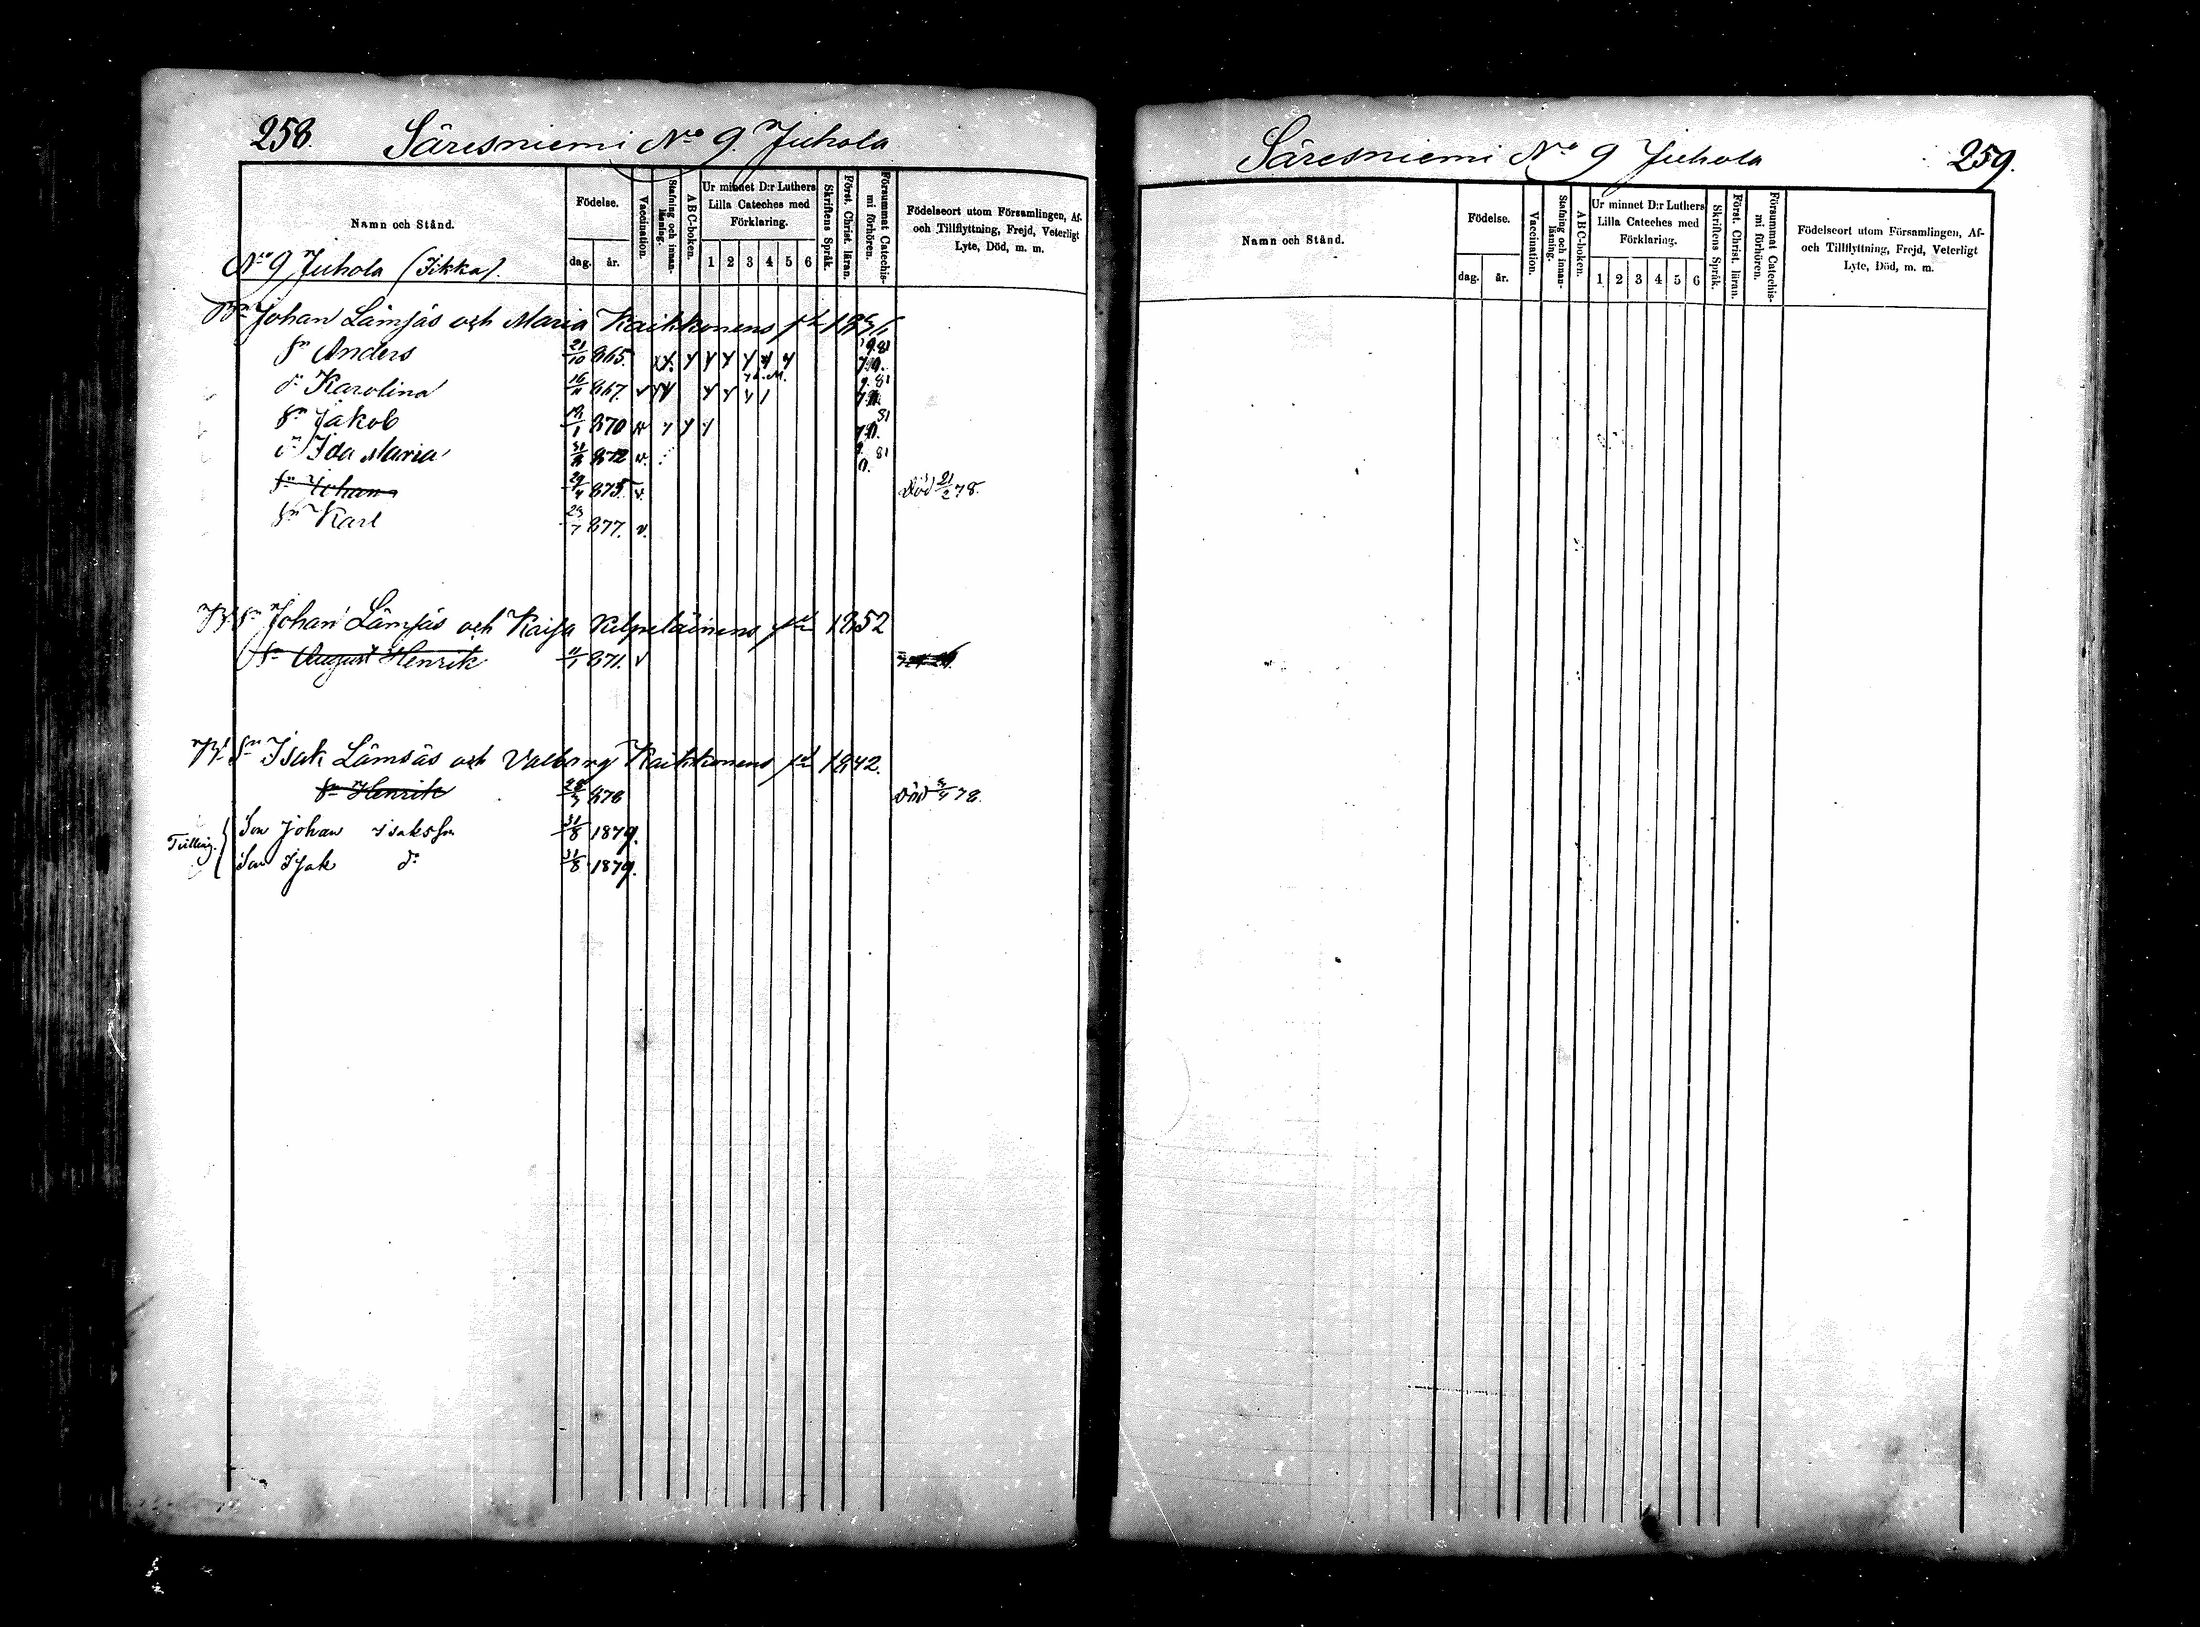 258. Säresniemi No 9. Juhola
Namn och Stånd.
Födelse.
dag.
år.
Vaccination.
Stafning och innanläsning.
ABC-boken.
Ur minnet D:r Luthers
Lilla Cateches med
Förklaring.
1 2 3 4 5 6
Skriftens Språk.
Först. Christ. läran.
Försummat Catechismi förhören.
Födelseort utom Församlingen, Af-
och Tillflyttning, Frejd, Veterligt
Lyte, Död, m. m.
No 9 Juhola (Iikka).
Johan Lämsäs och Maria Kaikkonens
Sn Anders 21/10 865.
dr Karolina 16/11 867.
Sn Jakob 870
dr Ida Maria 872 v.
Sn Johan 29/4 875. v. Död 21/2 78.
Sn Karl 23/7 877. v.
Sn Johan Lämsäs och Kajsa Kilpeläinens 1852
Sn August Henrik 871. v
Sn Isak Lämsäs och Valborg Kaikkonens 1842.
Sn Henrik 878 Död 78.
Tvilling. { Son Johan Isakssn 31/8 1879.
Son Isak do 31/8 1879.
Säresniemi No 9 Juhola 259.
Namn och Stånd.
Födelse.
dag.
år.
Vaccination.
Stafning och innanläsning.
ABC-boken.
Ur minnet D:r Luthers
Lilla Cateches med
Förklaring.
1 2 3 4 5 6
Skriftens Språk.
Först. Christ. läran.
Försummat Catechismi förhören.
Födelseort utom Församlingen, Af-
och Tillflyttning, Frejd, Veterligt
Lyte, Död, m. m.